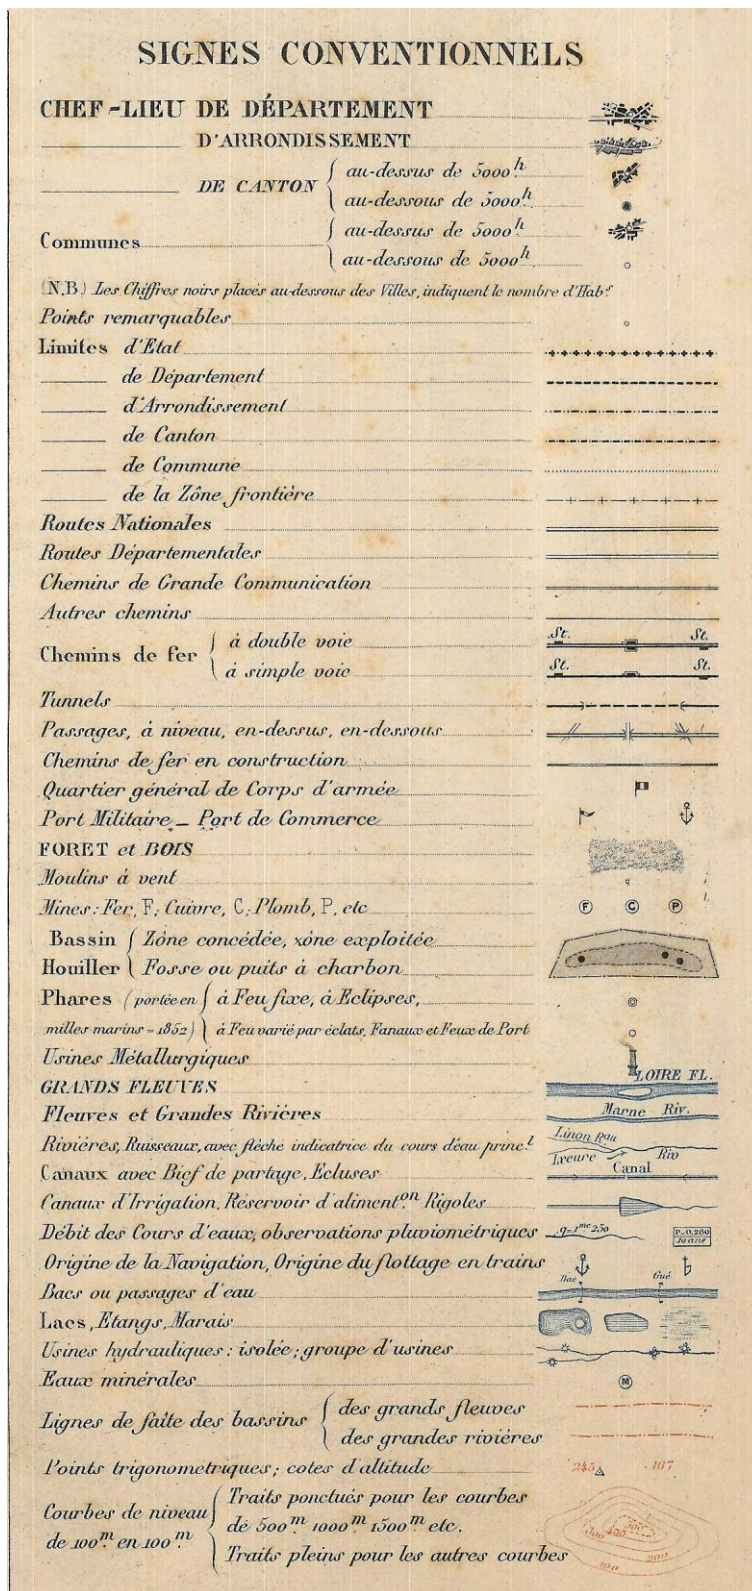 SIGNES CONVENTIONNELS
CHEF-LIEU DE DÉPARTEMENT
D'ARRONDISSEMENT
DE CANTON { au-dessus de 5000h
au-dessous de 5000h
Communes { au-dessus de 5000h
au-dessous de 5000h
(N.B.) Les Chiffres noirs placés au-dessous des Villes, indiquent le nombre d'Habts
Points remarquables
Limites d'Etat
de Département
d'Arrondissement
de Canton
de Commune
de la Zône frontière
Routes Nationales
Routes Départementales
Chemins de Grande Communication
Autres chemins
Chemins de fer { à double voie St. St.
à simple voie St. St.
Tunnels
Passages, à niveau, en-dessus, en-dessous
Chemins de fer en construction
Quartier général de Corps d'armée
Port Militaire _ Port de Commerce
FORET et BOIS
Moulins à vent
Mines: Fer, F; Cuivre, C; Plomb, P, etc F C P
Bassin { Zône concédée, zône exploitée
Houiller { Fosse ou puits à charbon
Phares (portée en { à Feu fixe, à Eclipses,
milles marins = 1852) } à Feu varié par éclats, Fanaux et Feux de Port
Usines Métallurgiques
GRANDS FLEUVES LOIRE FL.
Fleuves et Grandes Rivières Marne Riv.
Rivières, Ruisseaux, avec flèche indicatrice du cours d'eau princl Linon Rau
Ixeure Riv
Canaux avec Bief de partage, Ecluses Canal
Canaux d'Irrigation, Réservoir d'aliment.on Rigoles
Débit des Cours d'eaux, observations pluviométriques q=1mc 250 P=0,280
10 ans
Origine de la Navigation, Origine du flottage en trains
Bacs ou passages d'eau Bac Gué
Lacs, Etangs, Marais
Usines hydrauliques: isolée; groupe d'usines
Eaux minérales M
Lignes de faîte des bassins { des grands fleuves
des grandes rivières
Points trigonométriques; cotes d'altitude 245 .167
Courbes de niveau { Traits ponctués pour les courbes
de 100m en 100m de 500m 1000m 1500m etc.
Traits pleins pour les autres courbes
500 400 300 200 100